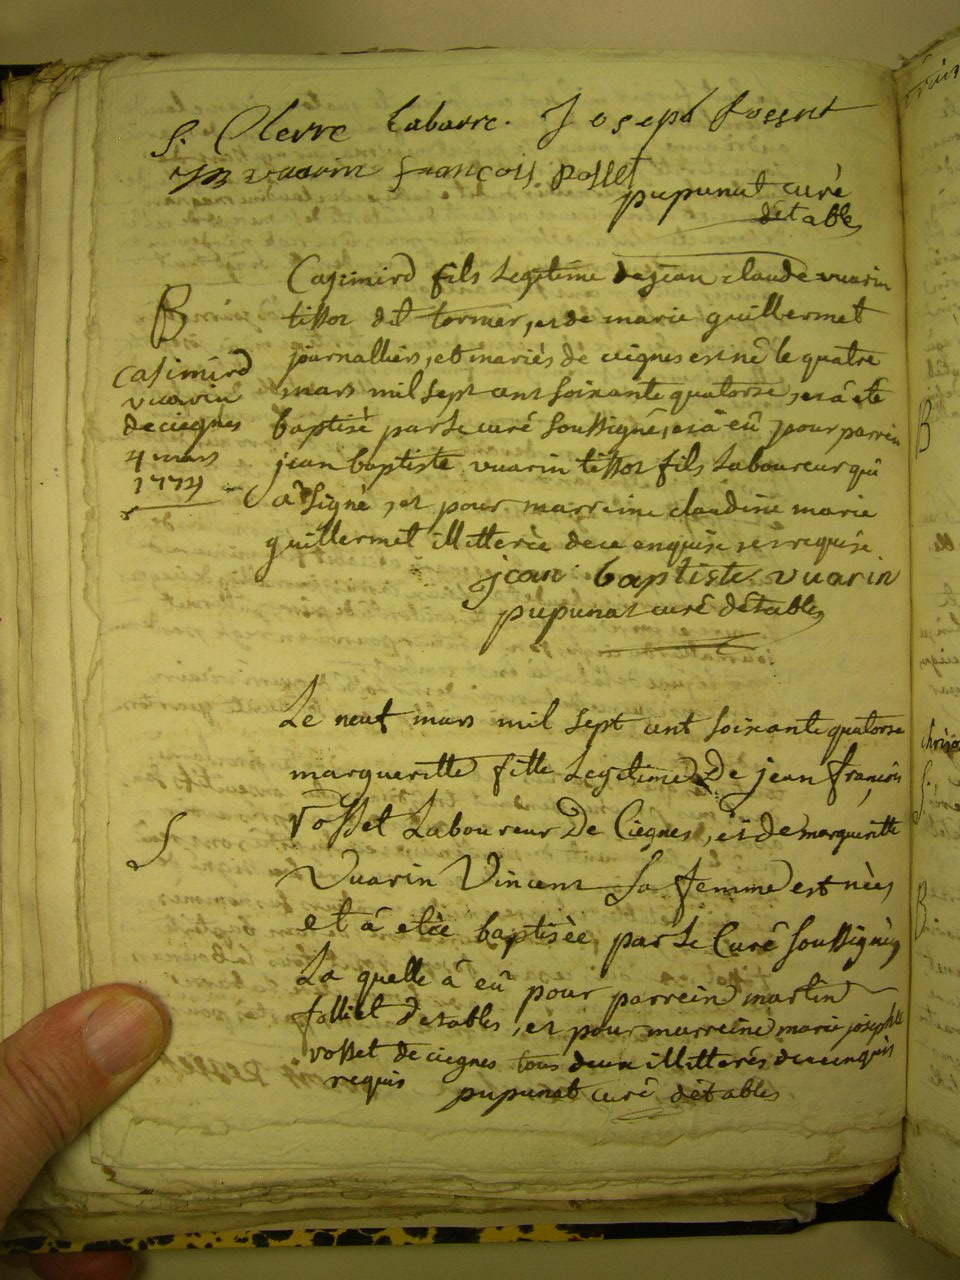 S. Clerre Labarre. Joseph
vuarin françois. posset
pupunat curé
détables
Casimird fils Legitime de jean claude vuarin
tissot dit tornier, et de marie guillermet
journalliers, et mariés de ciegnes est né le quatre
mars mil sept cent soixante quatorse, et â été
baptisé par Le curé soussigné, et â eû pour parrein
jean baptiste vuarin tissot fils Laboureur qui
â signé, et pour marreine claudine marie
guillermet illitterée de ce enquise et requise.
jean baptiste vuarin
pupunat curé détables
B
casimird
vuarin
de ciegnes
4 mars
1774
Le neuf mars mil sept cent soixante quatorse
margueritte fille Legitime De jean françois
Vosset Laboureur De Ciegnes, et de margueritte
Vuarin Vincent Sa femme est née,
et â etée baptisée par Le Curé soussigné,
La quelle â eû pour parrein martin
folliet detables, et pour marreine marie josephte
vosset de ciegnes tous deux illitterés de ce enquis
requis
pupunat curé détables
S
B
B